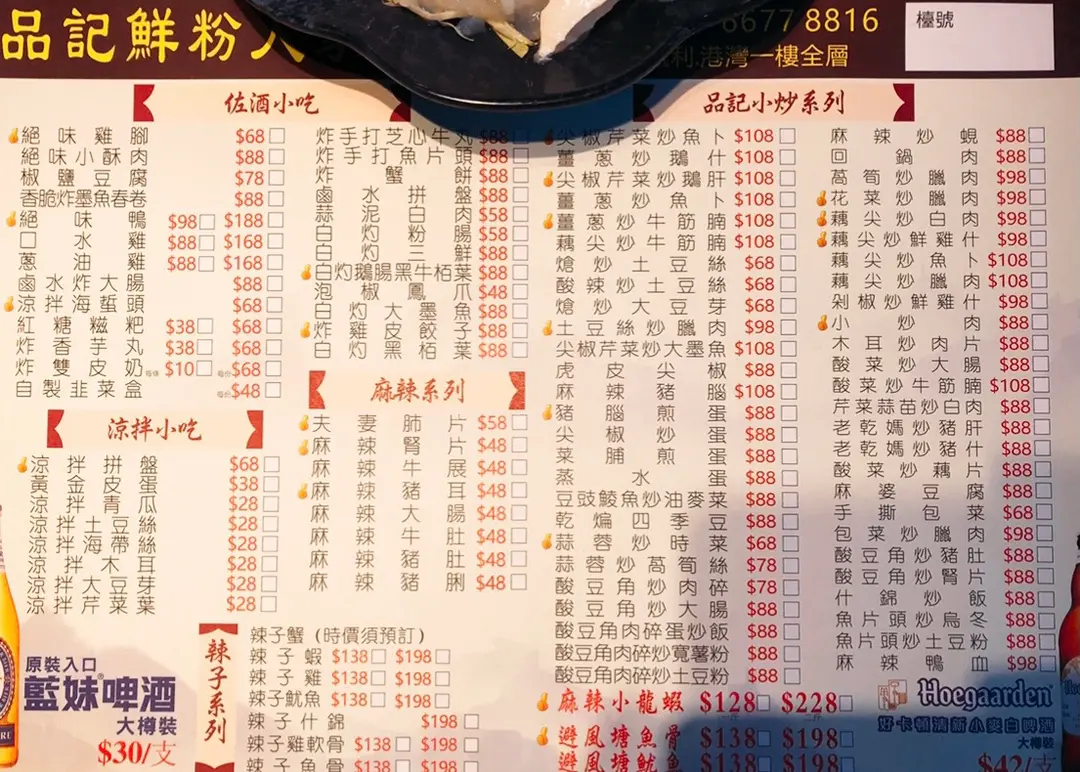 品記鮮粉
6677 8816
檯號
利.港灣一樓全層
佐酒小吃
絕味雞腳 $68
絕味小酥肉 $88
椒鹽豆腐 $78
香脆炸墨魚春卷 $88
絕味鴨 $98 $188
口水雞 $88 $168
蔥油雞 $88 $168
鹵水炸大腸 $88
涼拌海蜇頭 $68
紅糖糍粑 $38 $68
炸香芋丸 $38 $68
炸雙皮奶 $10 $68
自製韭菜盒 $48
炸手打芝心牛丸 $88
炸手打魚片頭 $88
炸蟹餅 $88
鹵水拼盤 $88
蒜泥白肉 $58
白灼粉腸 $58
白灼三鮮 $88
白灼鵝腸黑牛栢葉 $88
泡椒鳳爪 $48
白灼大墨魚 $88
炸雞皮餃子 $88
白灼黑栢葉 $88
涼拌小吃
涼拌拼盤 $68
黃金皮蛋 $38
涼拌青瓜 $28
涼拌土豆絲 $28
涼拌海帶絲 $28
涼拌木耳 $28
涼拌大豆芽 $28
涼拌芹菜葉 $28
麻辣系列
夫妻肺片 $58
麻辣腎片 $48
麻辣牛展 $48
麻辣豬耳 $48
麻辣大腸 $48
麻辣牛肚 $48
麻辣豬肚 $48
麻辣豬脷 $48
辣子系列
辣子蟹(時價須預訂)
辣子蝦 $138 $198
辣子雞 $138 $198
辣子魷魚 $138 $198
辣子什錦 $198
辣子雞軟骨 $138 $198
辣子魚骨 $138 $198
原裝入口
藍妹®啤酒
大樽裝
$30/支
品記小炒系列
尖椒芹菜炒魚卜 $108
薑蔥炒鵝什 $108
尖椒芹菜炒鵝肝 $108
薑蔥炒魚卜 $108
薑蔥炒牛筋腩 $108
藕尖炒牛筋腩 $108
熗炒土豆絲 $68
酸辣炒土豆絲 $68
熗炒大豆芽 $68
土豆絲炒臘肉 $98
尖椒芹菜炒大墨魚 $108
虎皮尖椒 $88
麻辣豬腦 $108
豬腦煎蛋 $88
尖椒炒蛋 $88
菜脯煎蛋 $88
蒸水蛋 $88
豆豉鯪魚炒油麥菜 $88
乾煸四季豆 $88
蒜蓉炒時菜 $68
蒜蓉炒萵筍絲 $78
酸豆角炒肉碎 $78
酸豆角炒大腸 $88
酸豆角肉碎蛋炒飯 $88
酸豆角肉碎炒寬薯粉 $88
酸豆角肉碎炒土豆粉 $88
麻辣小龍蝦 $128 $228
避風塘魚骨 $138 $198
避風塘魷魚 $138 $198
麻辣炒蜆 $88
回鍋肉 $88
萵筍炒臘肉 $98
花菜炒臘肉 $98
藕尖炒白肉 $98
藕尖炒鮮雞什 $98
藕尖炒魚卜 $108
藕尖炒臘肉 $108
剁椒炒鮮雞什 $98
小炒肉 $88
木耳炒肉片 $88
酸菜炒大腸 $88
酸菜炒牛筋腩 $108
芹菜蒜苗炒白肉 $88
老乾媽炒豬肝 $88
老乾媽炒豬什 $88
酸菜炒藕片 $88
麻婆豆腐 $88
手撕包菜 $68
包菜炒臘肉 $98
酸豆角炒豬肚 $88
酸豆角炒腎片 $88
什錦炒飯 $88
魚片頭炒烏冬 $88
魚片頭炒土豆粉 $88
麻辣鴨血 $98
Hoegaarden
好卡頓清新小麥白啤酒
大樽裝
$42/支